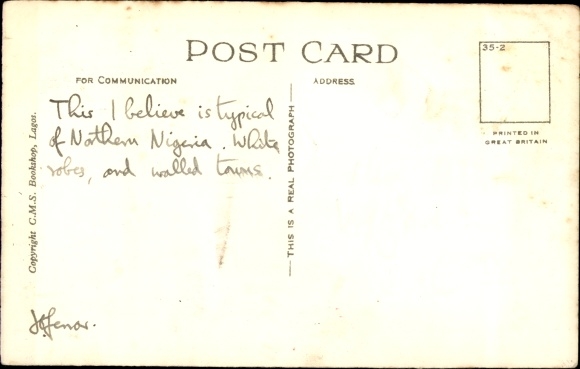 POST CARD
FOR COMMUNICATION
ADDRESS
35-2
PRINTED IN
GREAT BRITAIN
This I believe is typical
of Northern Nigeria. White
robes, and walled towns.
Copyright C.M.S. Bookshop, Lagos.
THIS IS A REAL PHOTOGRAPH